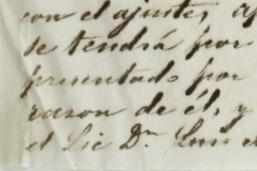 con el ajuste,
se tendrá por
presentado por
razon de él, y
el Lic Dn. Luis